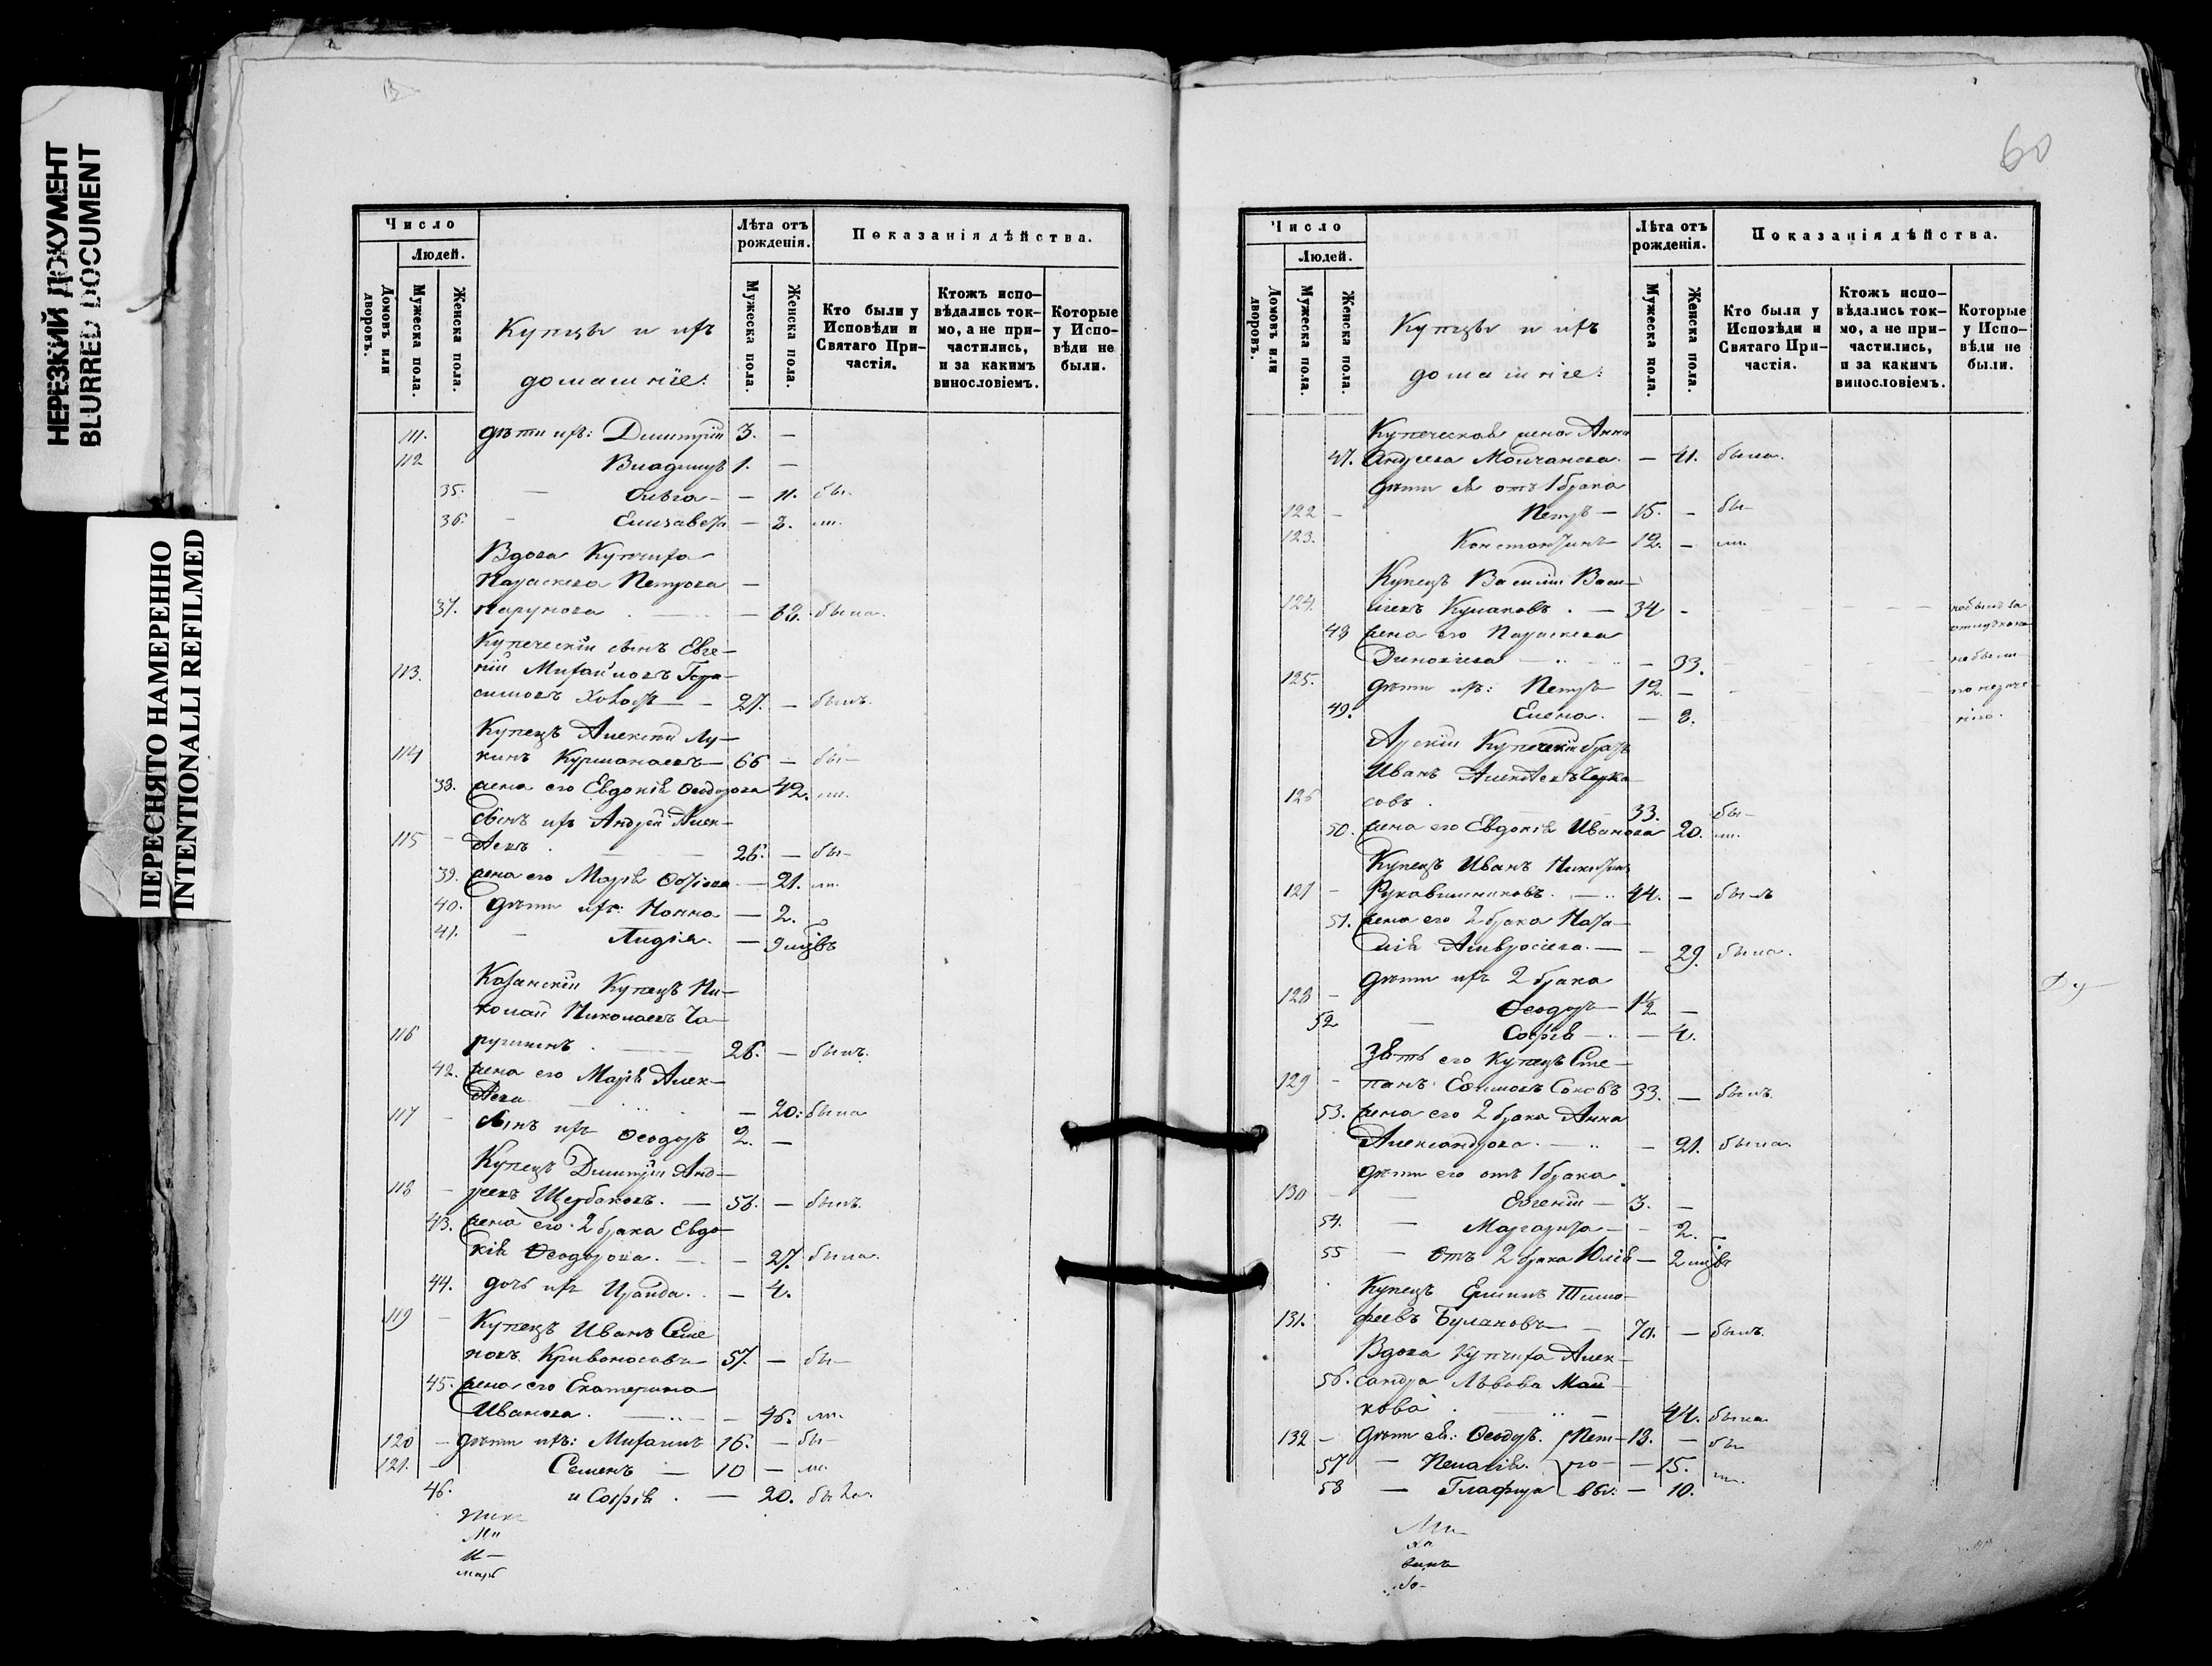 НЕРЕЗКИЙ ДОКУМЕНТ
BLURRED DOCUMENT
ПЕРЕСНЯТО НАМЕРЕННО
INTENTIONALLI REFILMED
Число
Людей.
Домовъ или дворовъ.
Мужеска пола.
Женска пола.
Купцы и ихъ
домашніе:
Лѣта отъ рожденія.
Мужеска пола.
Женска пола.
Показанія дѣйства.
Кто были у Исповѣди и Святаго Причастія.
Ктожъ исповѣдались токмо, а не причастились, и за какимъ винословіемъ.
Которые у Исповѣди не были.
111. дѣти ихъ: Димитрій 3. —
112 Владиміръ 1. —
35. — Ольга — — 11. бы-
36. — Елизавета — 8. ли.
Вдова Купчиха
Параскева Петрова —
37. — 62. была.
Купеческій сынъ Евге-
113. ній Михайловъ Гера-
симовъ 27. — былъ.
Купецъ Алексѣй Лу-
114 кинъ Курманаевъ — 66 — бы-
38. жена его Евдокія Ѳеодорова 42. ли.
сынъ ихъ Андрей Алек-
115 — сѣевъ 26. — бы-
39. жена его Марія — 21. ли.
40. дѣти ихъ: Нонна — 2.
41. — Лидія. — 9 мцовъ
Казанскій Купецъ Ни-
колай Николаевъ Ча-
116 ругинъ 26. — былъ.
42. жена его Марія Алек-
сѣева — 20. была
117 — сынъ ихъ Ѳеодоръ 2. —
Купецъ Димитрій Анд-
118 — реевъ Щербаковъ. — 56. — былъ.
43. жена его 2 брака Евдо-
кія Ѳеодорова. — 27. была.
44. дочь ихъ Ираида. — 4.
119 — Купецъ Иванъ Семе
новъ Кривоносовъ 57. — бы-
45. жена его Екатерина
Иванова. — 46. ли.
120 — дѣти ихъ: Михаилъ 16. — бы-
121. — Семенъ — 10 — ли.
46. и Софія. — 20. была.
60
Число
Людей.
Домовъ или дворовъ.
Мужеска пола.
Женска пола.
Купцы и ихъ
домашніе:
Лѣта отъ рожденія.
Мужеска пола.
Женска пола.
Показанія дѣйства.
Кто были у Исповѣди и Святаго Причастія.
Ктожъ исповѣдались токмо, а не причастились, и за какимъ винословіемъ.
Которые у Исповѣди не были.
Купеческая жена Анна
47. Андреева Молчанова. — 41. была.
дѣти ея отъ 1 брака
122 — Петръ — 15. — бы-
123. Константинъ 12. — ли.
Купецъ Василій Васи-
124. льевъ Кулаковъ. — 34 — небылъ за
отлучкою
48 жена его Параскева
Зиновіева — 33. небыли
125. дѣти ихъ: Петръ 12. —
49. Елена. — 8.
Арскій Купеческій братъ
Иванъ Алексѣевъ Черка-
126 совъ. 33. бы-
50. жена его Евдокія Иванова 20. ли.
Купецъ Иванъ Никитинъ
127 — Рукавишниковъ. 44. — былъ
51. жена его 2 брака Ната-
лія Амвросіева. — 29. была.
дѣти ихъ 2 брака
128 — Ѳеодоръ — 1½ —
52 — Софія — 4.
Зять его Купецъ Сте-
129 — панъ Ефимовъ Соковъ 33. — былъ.
53. жена его 2 брака Анна
Александрова. — 21. была.
дѣти его отъ 1 брака
130 — Евгеній — 3. —
54. — Маргарита — 2.
55 — Отъ 2 брака Юлія — 2 мцовъ
Купецъ Ермилъ Тимо-
131. феевъ Булановъ — 70. — былъ.
Вдова Купчиха Алек-
56. сандра Львова Май-
кова — 44. была
132 — дѣти ея: Ѳеодоръ. Пет- 18. — бы-
57 — Пелагія. ро- — 15. ли.
58 — Глафира вы: — 10.